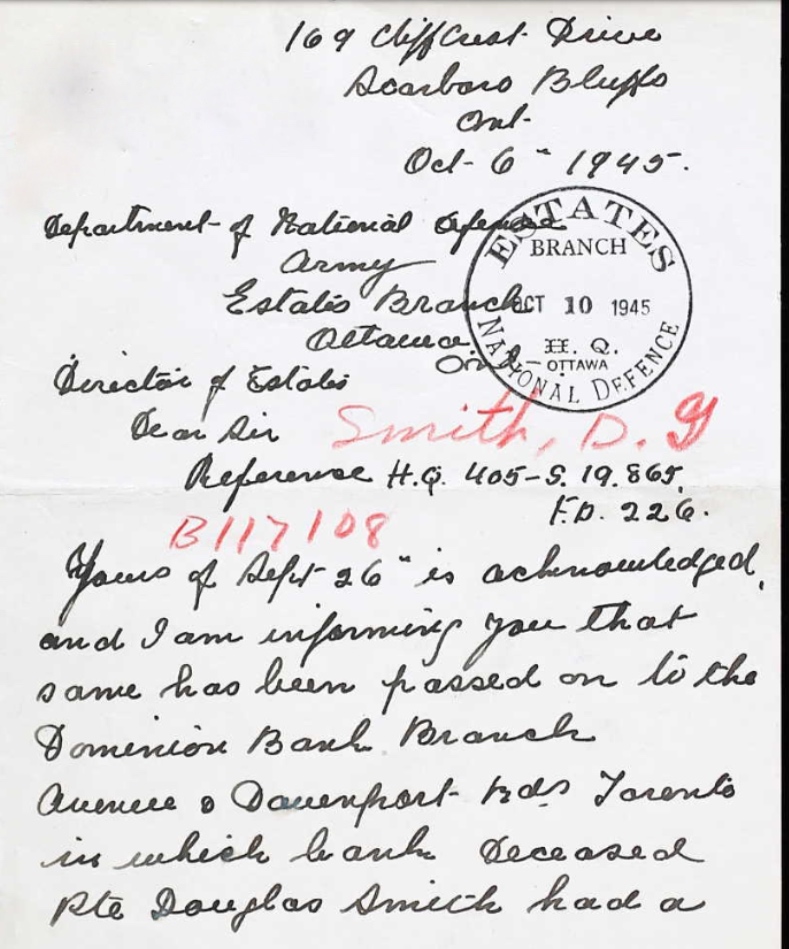 169 Cliffcrest Drive
Scarboro Bluffs
Ont.
Oct. 6" 1945.
Department of National Defence
Army
Estates Branch
Ottawa
Ont
ESTATES
BRANCH
OCT 10 1945
H. Q.
OTTAWA
NATIONAL DEFENCE
Director of Estates
Dear Sir
Smith, D. G
Reference H.Q. 405-S. 19.865.
F.D. 226.
B117108
Yours of Sept 26" is acknowledged,
and I am informing you that
same has been passed on to the
Dominion Bank Branch
Avenue & Davenport Rds Toronto
in which bank Deceased
Pte Douglas Smith had a